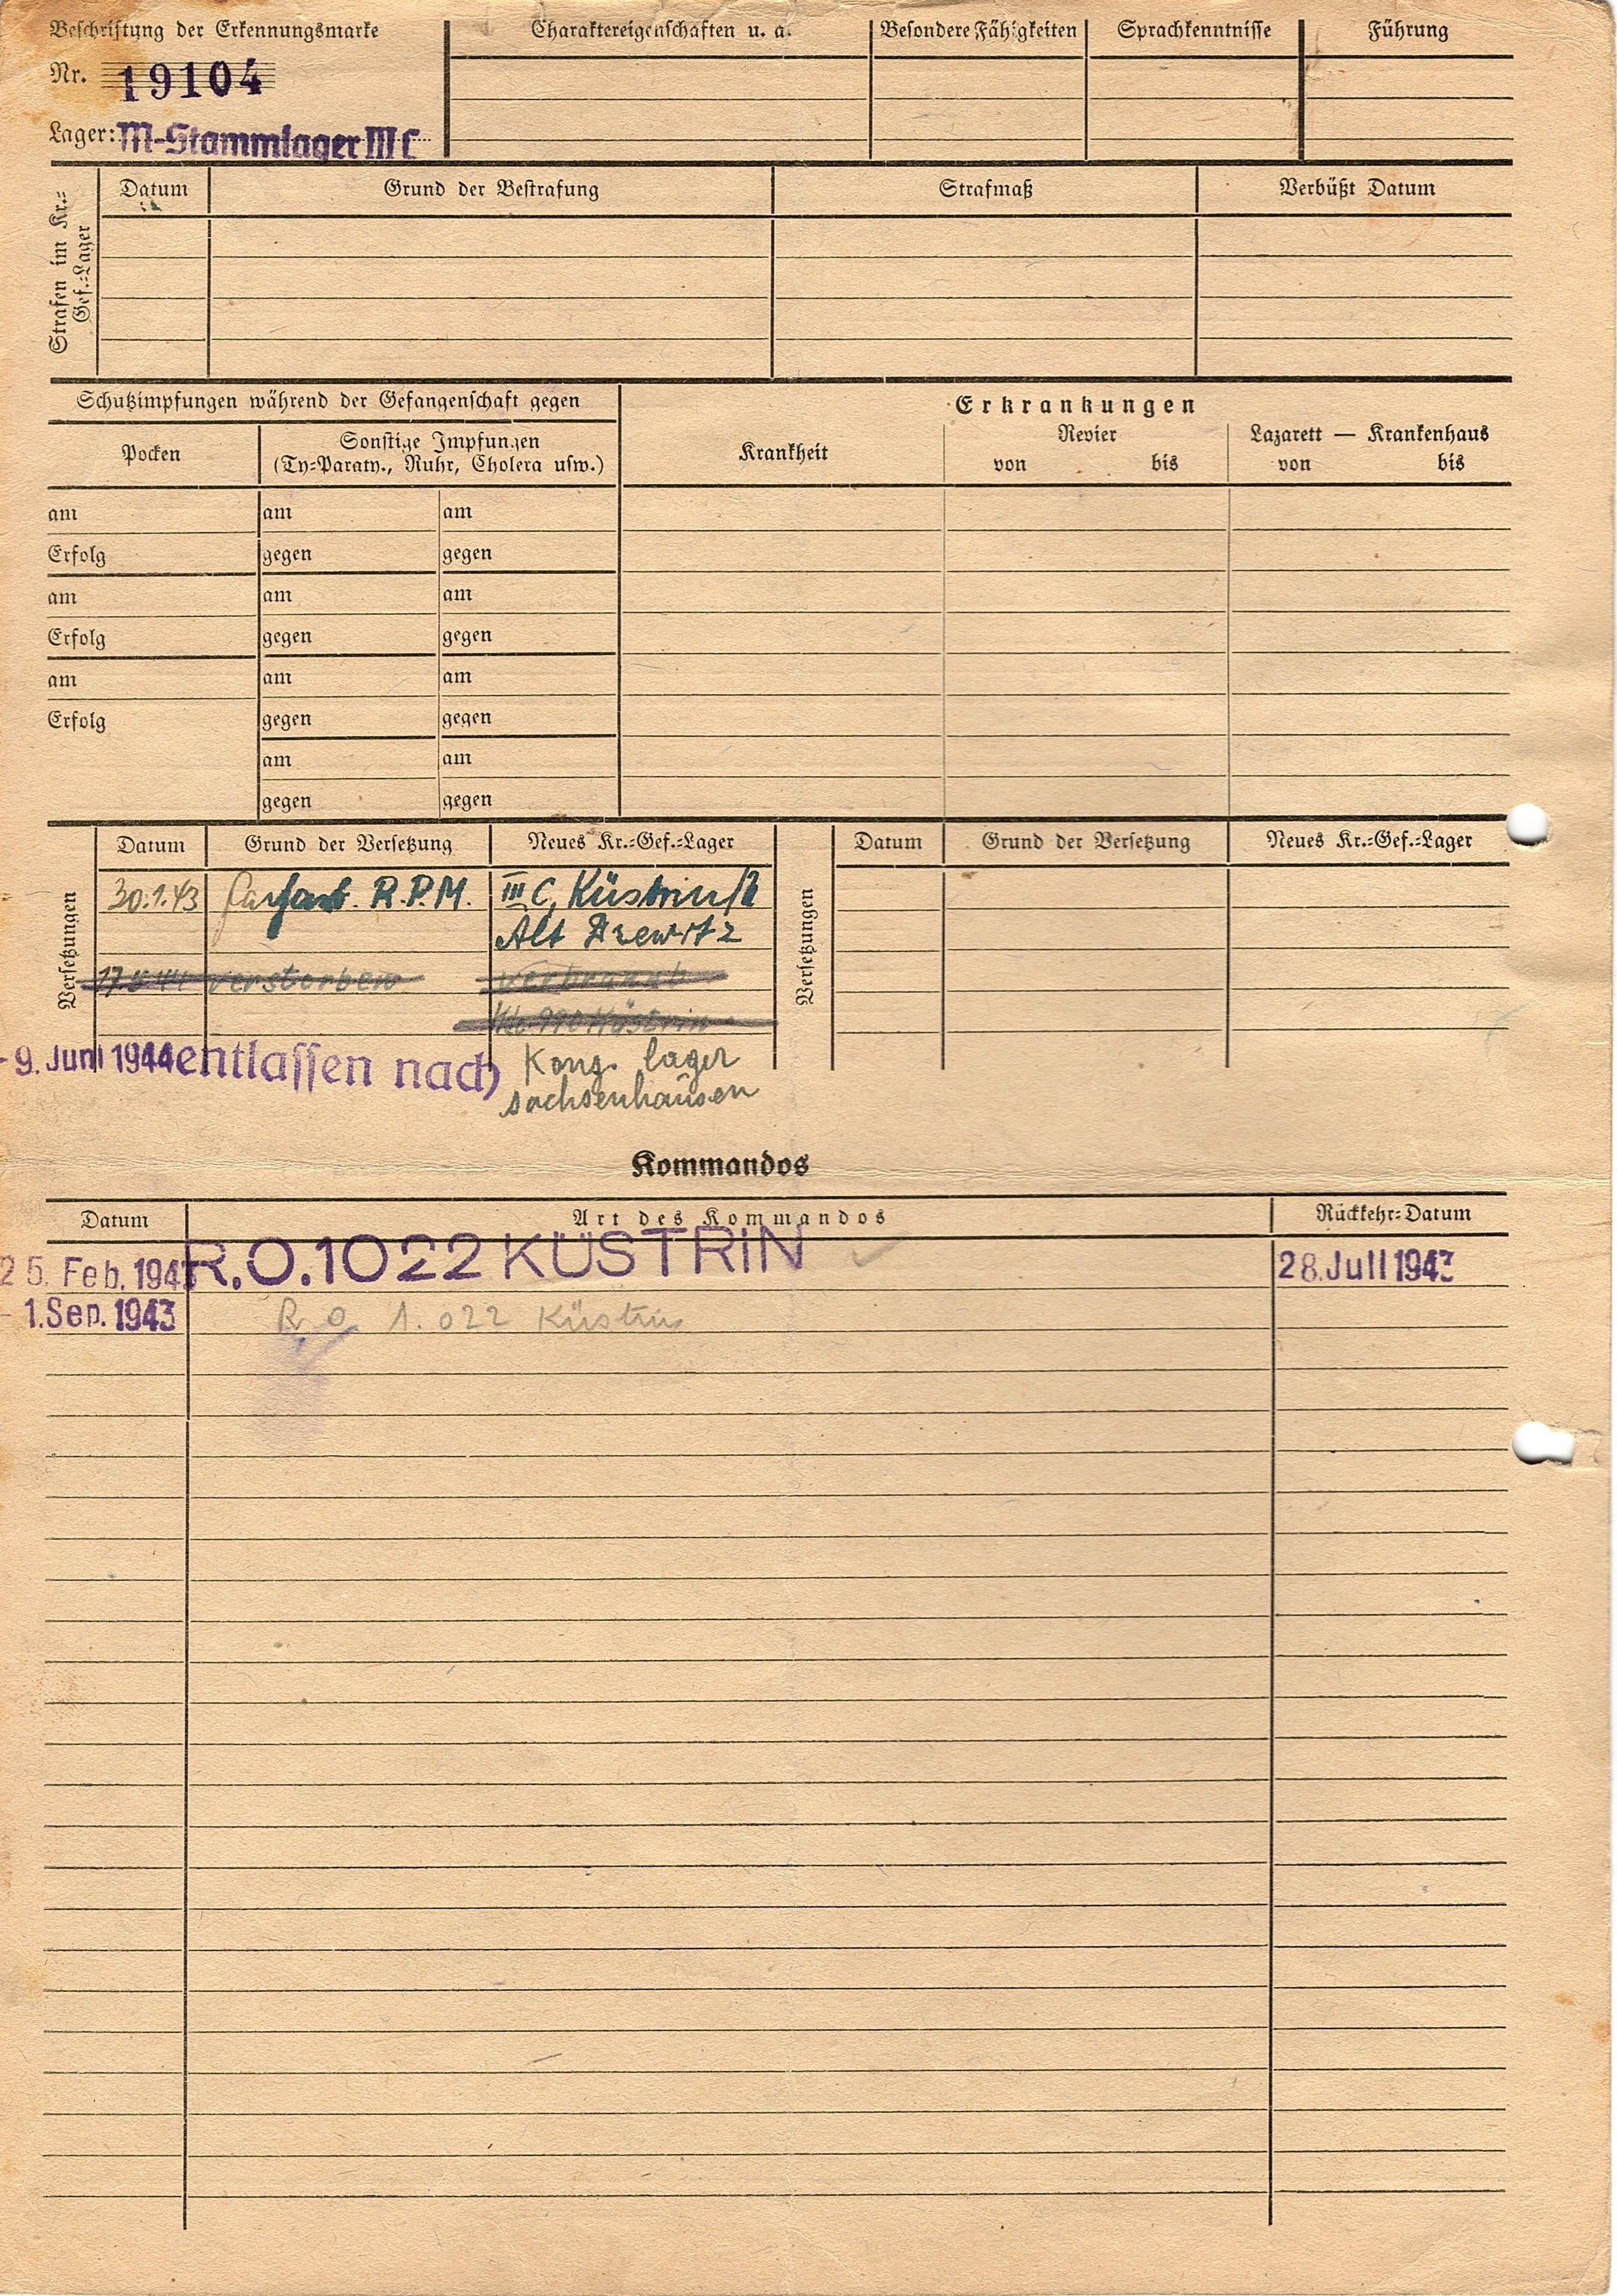 Beschriftung der Erkennungsmarke
Nr. 19104
Lager: M-Stammlager III C
Charaktereigenschaften u. a.
Besondere Fähigkeiten
Sprachkenntnisse
Führung
Strafen im Kr.=
Gef.=Lager
Datum
Grund der Bestrafung
Strafmaß
Verbüßt Datum
Schutzimpfungen während der Gefangenschaft gegen
Pocken
Sonstige Impfungen
(Ty=Paraty., Ruhr, Cholera usw.)
Erkrankungen
Krankheit
Revier
von bis
Lazarett — Krankenhaus
von bis
am am am
Erfolg gegen gegen
am am am
Erfolg gegen gegen
am am am
Erfolg gegen gegen
am am
gegen gegen
Versetzungen
Datum Grund der Versetzung Neues Kr.=Gef.=Lager
30.1.43 R.P.M. III C, Küstrin/
Alt Drewitz
17.5.44 verstorben verbrannt
Küstrin
- 9. Juni 1944 entlassen nach Konz. lager
sachsenhausen
Versetzungen
Datum Grund der Versetzung Neues Kr.=Gef.=Lager
Kommandos
Datum Art des Kommandos Rückkehr=Datum
25. Feb. 1943 R.O. 1022 KÜSTRIN 28. Juli 1943
- 1. Sep. 1943 R. O. 1.022 Küstrin